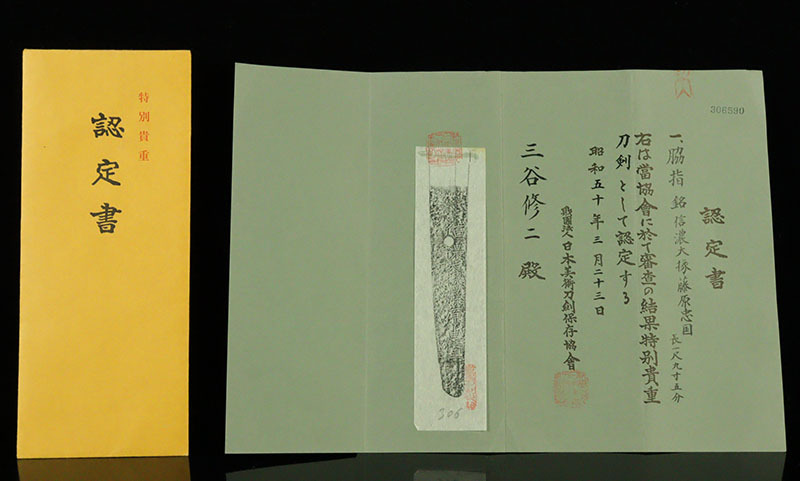 特別貴重
認定書
306590
認定書
一、脇指 銘 信濃大掾藤原忠国
長一尺九寸五分
右は當協會に於て審査の結果特別貴重
刀劍として認定する
昭和五十年三月二十三日
財團法人日本美術刀劍保存協會
三谷修二殿
306